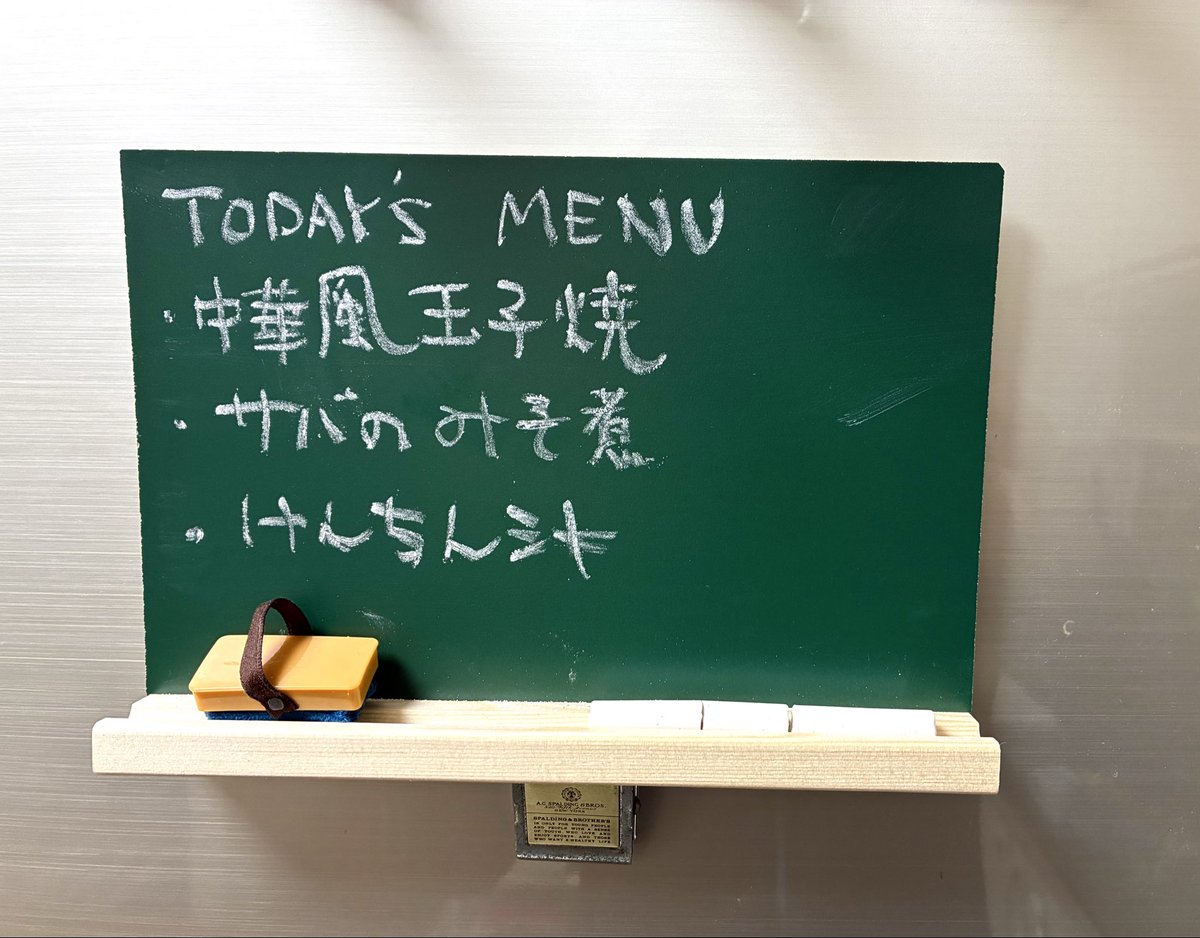 TODAY'S MENU
・中華風玉子焼
・サバのみそ煮
・けんちん汁
A.G. SPALDING & BROS.
NEW YORK
SPALDING & BROTHER'S
IS ONLY FOR YOUNG PEOPLE
AND PEOPLE WITH A SENSE
OF YOUTH WHO LOVE AND
ENJOY SPORTS AND THOSE
WHO WANT A HEALTHY LIFE